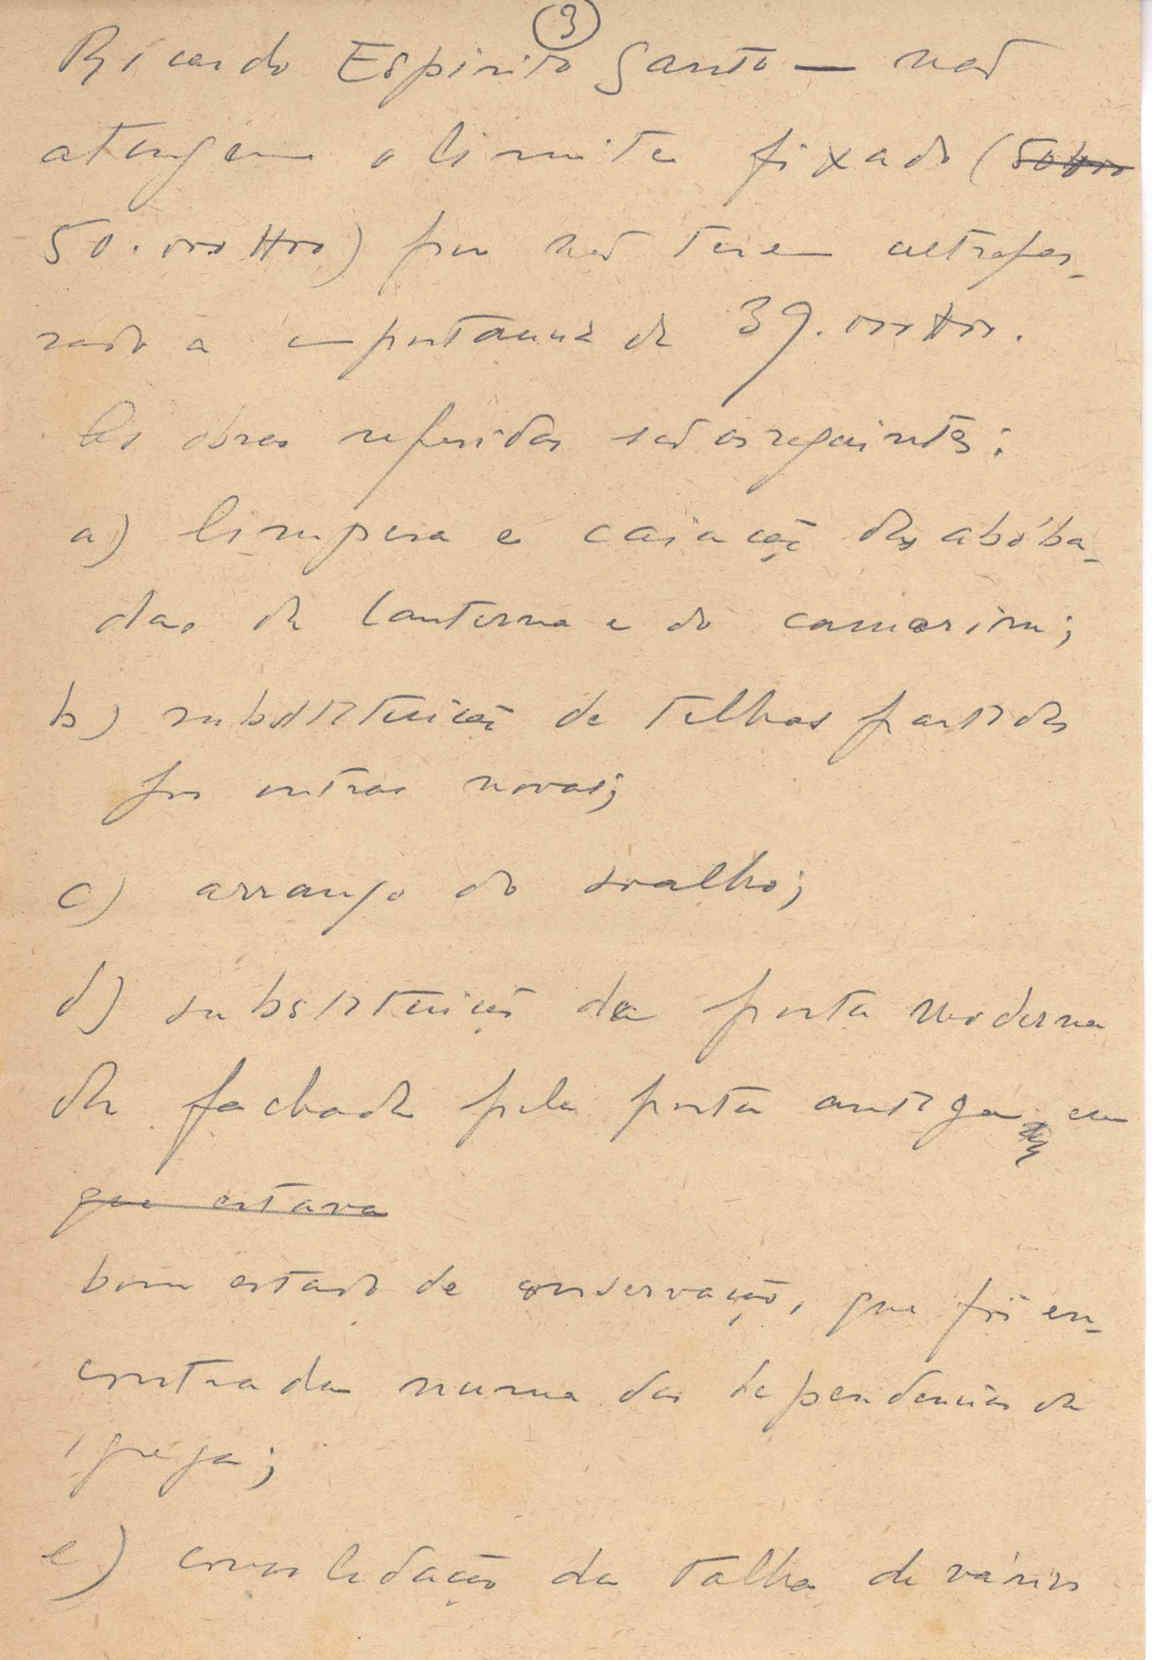 3
Ricardo Espirito Santo — não
atingem o limite fixado (50$00
50.000$00) por não terem ultrapas-
sado a importancia de 39.000$00.
As obras referidas são as seguintes:
a) limpesa e caiação das abóba-
das da lanterna e do camarim;
b) substituição de telhas partidas
por outras novas;
c) arranjo do soalho;
d) substituição da porta moderna
da fachada pela porta antiga, em
que estava
bom estado de conservação, que foi en-
contrada numa das dependencias da
igreja;
e) consolidação da talha de vários